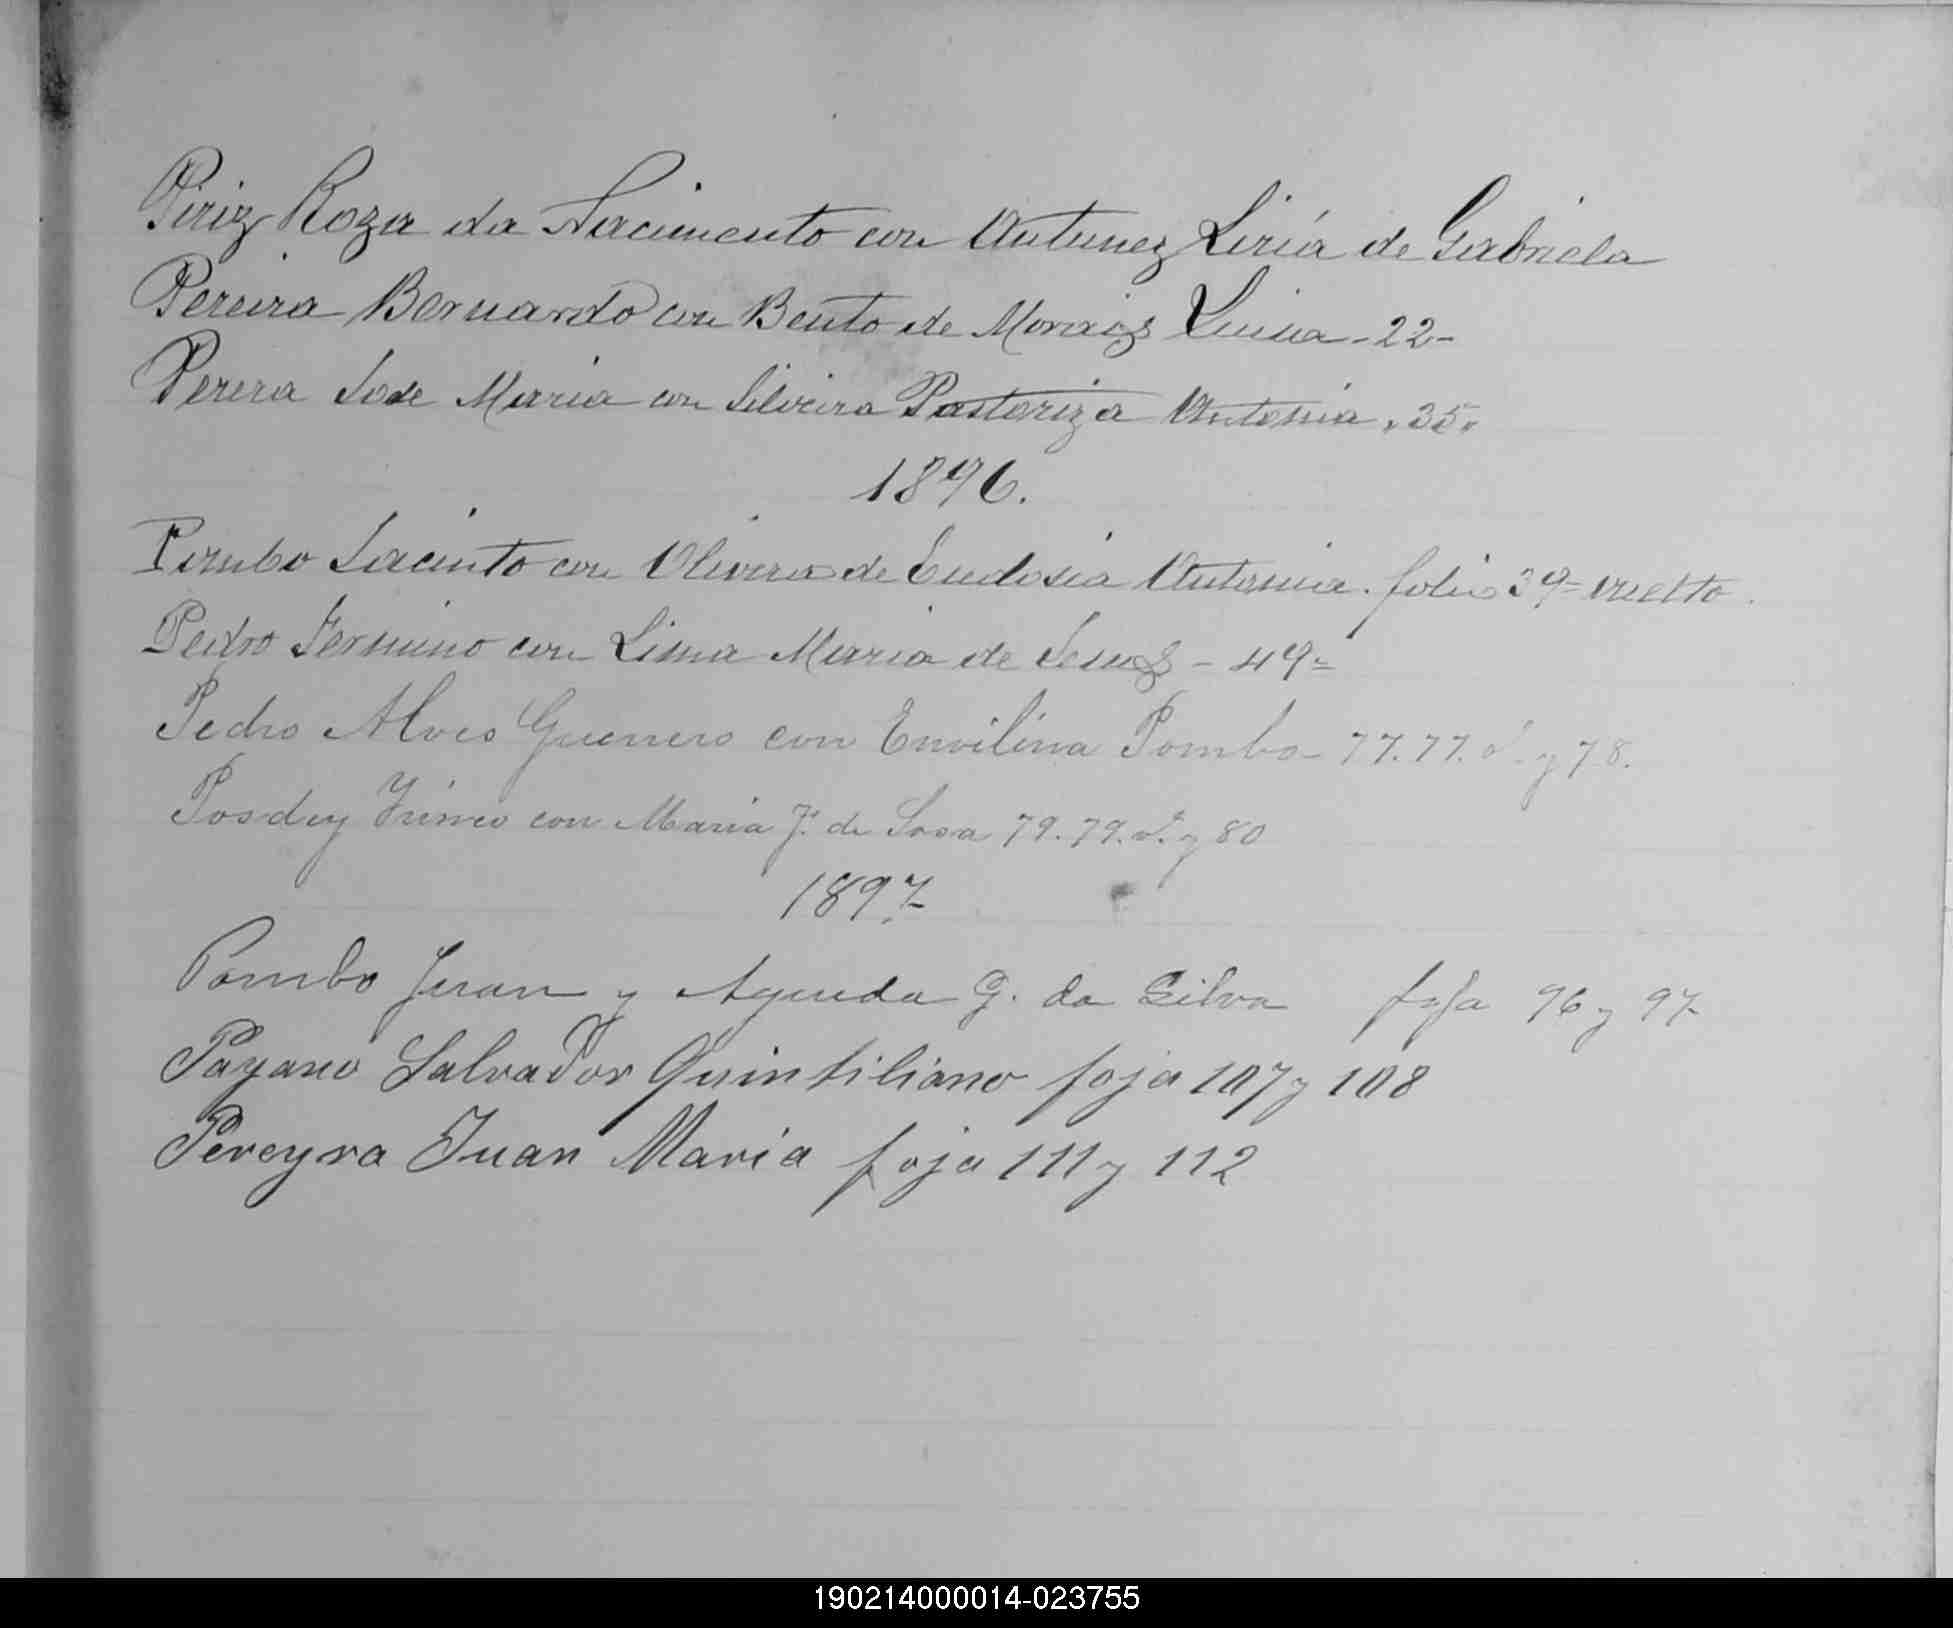 Piriz Roza da Nacimento con Antunez Liria de Gabriela
Pereira Bernardo con Bento de Moraes Luisa - 22 -
Perera Jose Maria con Silveira Pastoriza Antonia „ 35 „
1896.
Pombo Jacinto con Olivera de Eudosia Antonia. folio 39 = vuelto.
Pedro Fermino con Lima Maria de Jesus - 49 =
Pedro Alves Guerrero con Envilina Pombo 77. 77. v. y 78.
con Maria J. de Sosa 79. 79. v. y 80
1897
Pombo Juan y Agueda G. da Silva foja 96 y 97
Payano Salvador Quintiliano foja 107 y 108
Pereyra Juan Maria foja 111 y 112
190214000014-023755